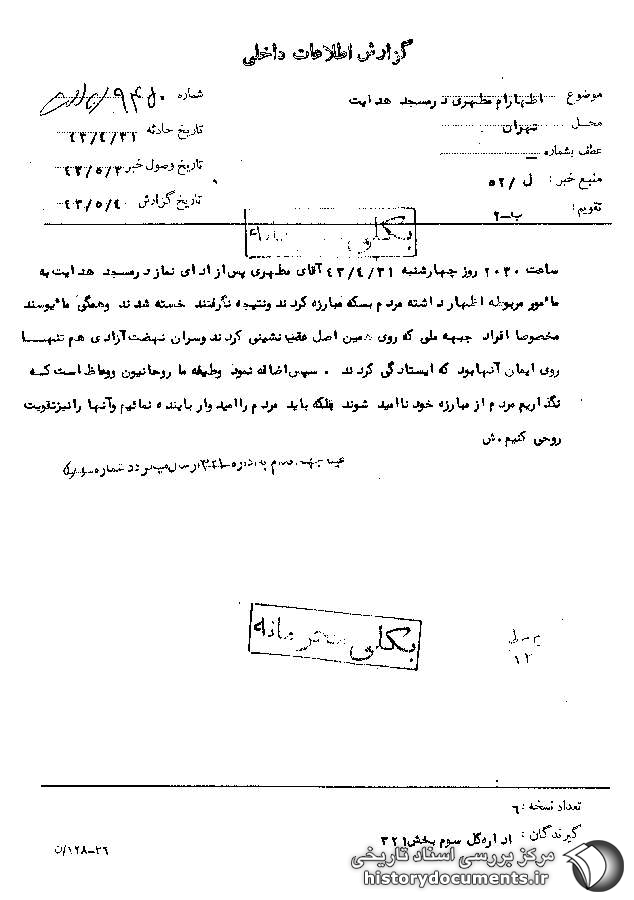 گزارش اطلاعات داخلی
موضوع اظهارات مطهری در مسجد هدایت
محل تهران
عطف بشماره
منبع خبر: ل / ۵۲
تقویم: ب-۲
شماره
تاریخ حادثه ۴۳/۴/۳۱
تاریخ وصول خبر ۴۳/۵/۳
تاریخ گزارش ۴۳/۵/۴
بکلی
ساعت ۲۰۳۰ روز چهارشنبه ۴۳/۴/۳۱ آقای مطهری پس از ادای نماز در مسجد هدایت به
مأمور مربوطه اظهار داشته مردم بسکه مبارزه کردند ونتیجه نگرفتند خسته شدند وهمگی مأیوسند
مخصوصا افراد جبهه ملی که روی همین اصل عقب نشینی کردند وسران نهضت آزادی هم تنهـا
روی ایمان آنها بود که ایستادگی کردند . سپس اضافه نمود وظیفه ما روحانیون ووعاظ است کـه
نگذاریم مردم از مبارزه خود ناامید شوند بلکه باید مردم را امیدوار بآینده نمائیم وآنها را نیز تقویت
روحی کنیم.ش
بکلی محرمانه
۱۲
تعداد نسخه: ۶
گیرندگان: اداره کل سوم بخش ۳۲۱
۱۲۸-۳۶/ن
مرکز بررسی اسناد تاریخی
historydocuments.ir